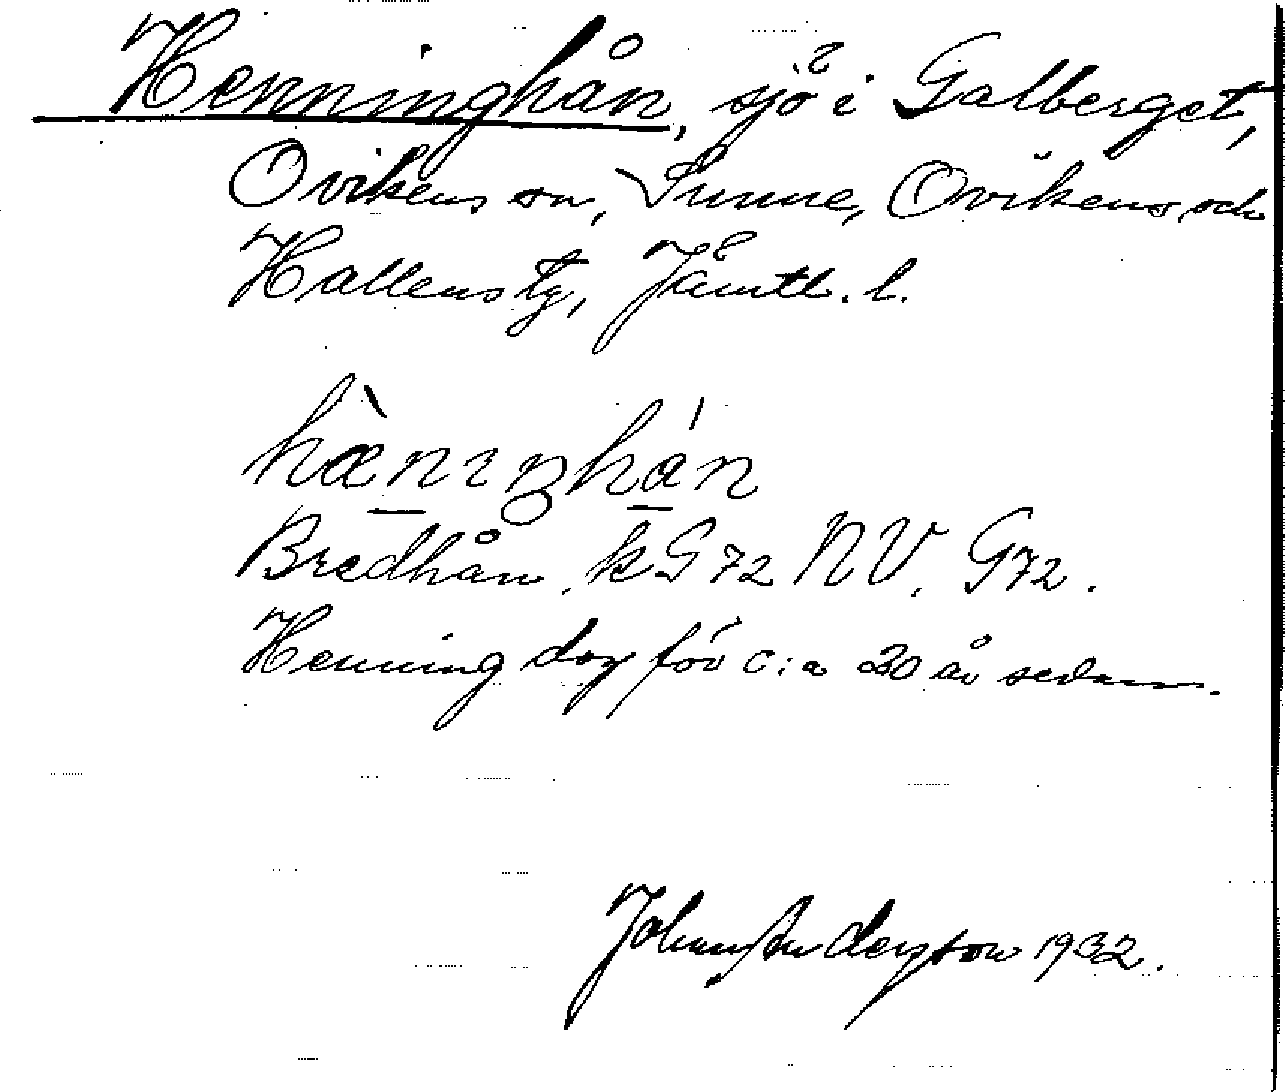 Henninghån, sjö i Galberget,
Ovikens sn, Sunne, Ovikens och
Hallens tg, Jämtl. l.
hæ̀nıŋhán
Bredhån. kG72 NV. G72.
Henning dog för c:a 30 år sedan.
Johan Anderson 1932.